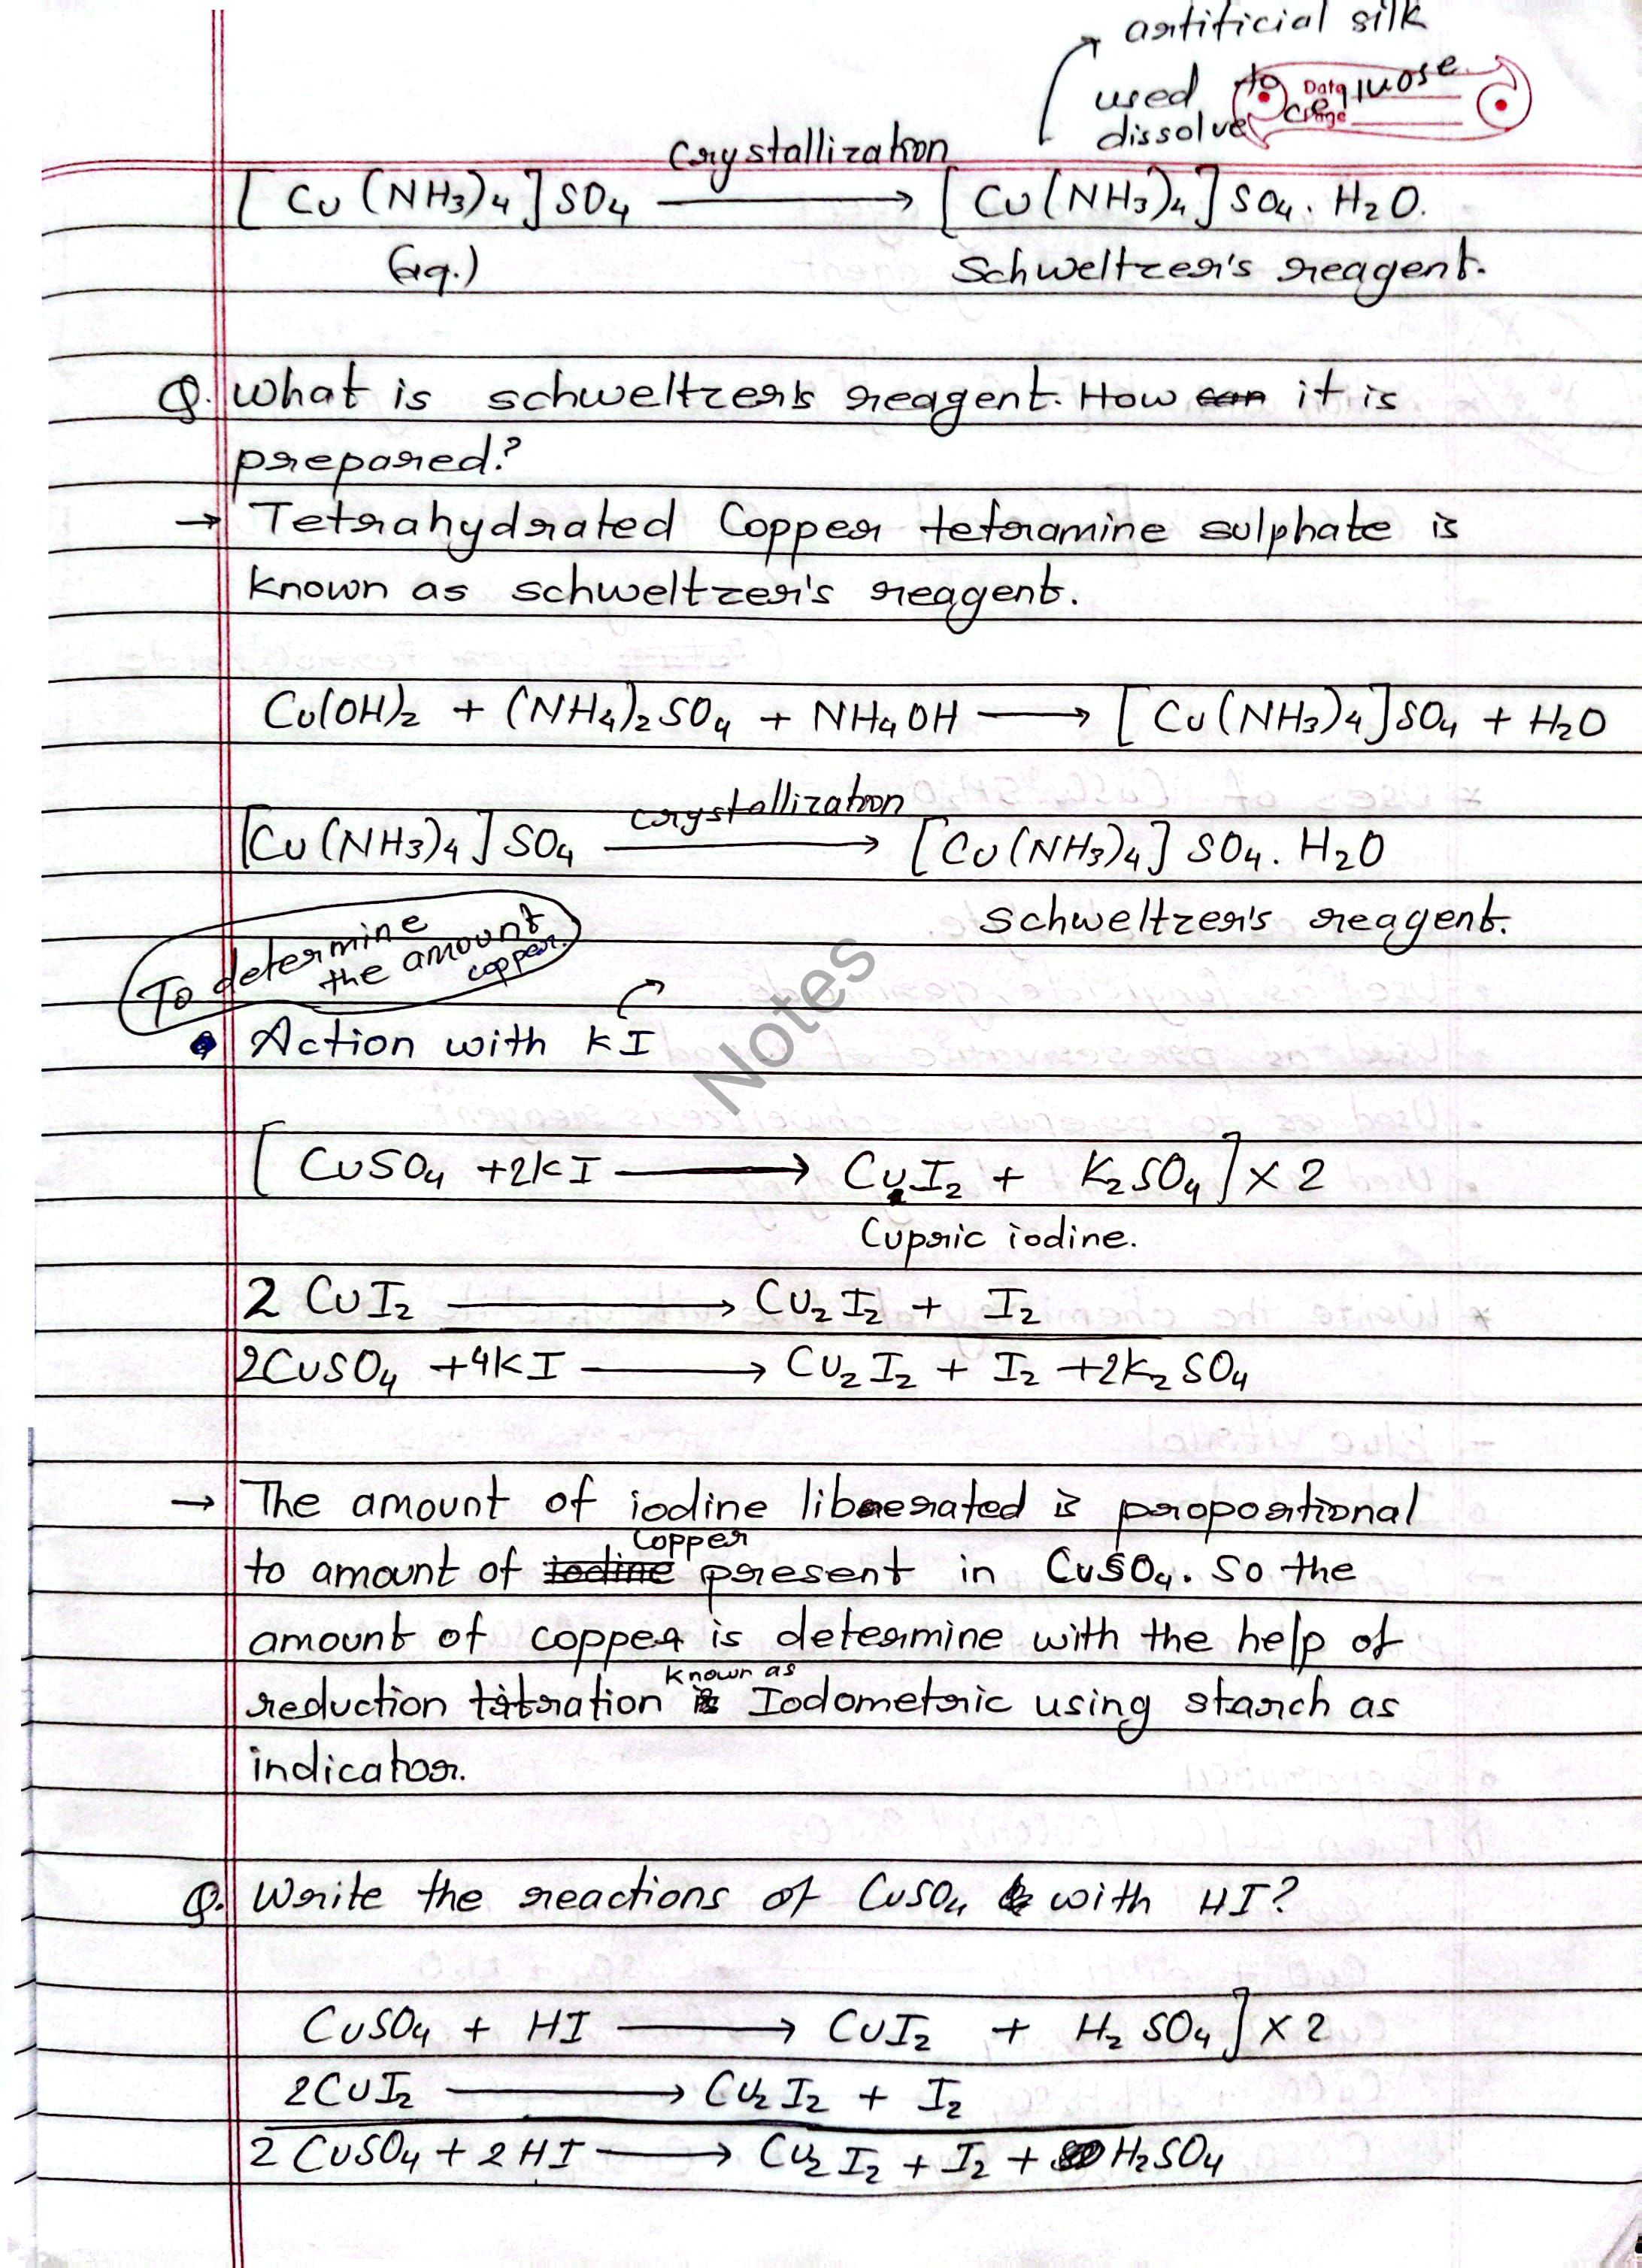 artificial silk
used to
dissolve
Date
Page
crystallization
[Cu(NH3)4]SO4 ⟶ [Cu(NH3)4]SO4. H2O.
(aq.)
Schweltzer's reagent.
Q. What is schweltzer's reagent. How can it is
prepared?
→ Tetrahydrated Copper tetramine sulphate is
known as schweltzer's reagent.
Cu(OH)2 + (NH4)2SO4 + NH4OH ⟶ [Cu(NH3)4]SO4 + H2O
crystallization
[Cu(NH3)4]SO4 ⟶ [Cu(NH3)4]SO4. H2O
Schweltzer's reagent.
To determine
the amount
copper.
• Action with KI
Notes
[CuSO4 +2KI ⟶ CuI2 + K2SO4] x 2
Cupric iodine.
2 CuI2 ⟶ Cu2I2 + I2
2CuSO4 +4KI ⟶ Cu2I2 + I2 +2K2SO4
→ The amount of iodine liberated is proportional
copper
to amount of iodine present in CuSO4. So the
amount of copper is determine with the help of
known as
reduction titration Iodometric using starch as
indicator.
Q. Write the reactions of CuSO4 with HI?
CuSO4 + HI ⟶ CuI2 + H2SO4] x 2
2CuI2 ⟶ Cu2I2 + I2
2 CuSO4 + 2HI ⟶ Cu2I2 + I2 + H2SO4